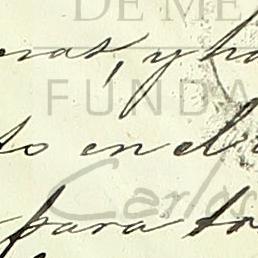 DE ME
y ha
FUNDA
to en el
Carlos
para tr